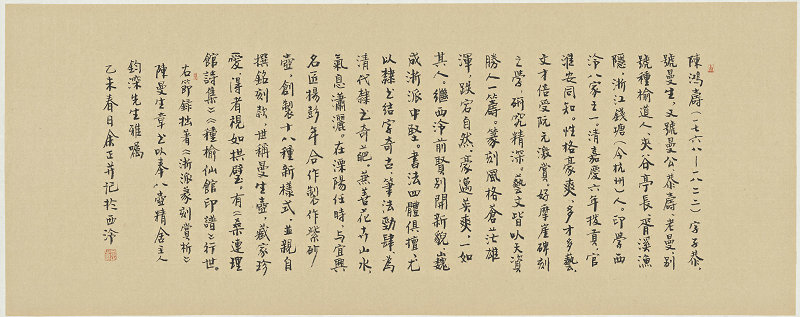 陳鴻壽(一七六八—一八二二)字子恭，
號曼生，又號曼公、恭壽、老曼，別
號種榆道人、夾谷亭長、胥溪漁
隱，浙江錢塘(今杭州)人。印學西
泠八家之一。清嘉慶六年拔貢，官
淮安同知。性格豪爽，多才多藝，
文才倍受阮元激賞。好摩崖碑刻
之學，研究精深。藝文皆以天資
勝人一籌。篆刻風格蒼茫雄
渾，跌宕自然，豪邁英爽，一如
其人。繼西泠前賢別開新貌，巍
成浙派中堅。書法四體俱擅，尤
以隸書結字奇古，筆法勁肆，為
清代隸書奇葩。兼善花卉山水，
氣息瀟灑。在溧陽任時，與宜興
名匠楊彭年合作製作紫砂
壺，創製十八種新樣式，並親自
撰銘刻款，世稱曼生壺，藏家珍
愛，得者視如拱璧。有《桑連理
館詩集》《種榆仙館印譜》行世。
右節錄拙著《浙派篆刻賞析》
陳曼生章書以奉八壺精舍主人
鈞深先生雅囑
乙未春日余正并記於西泠